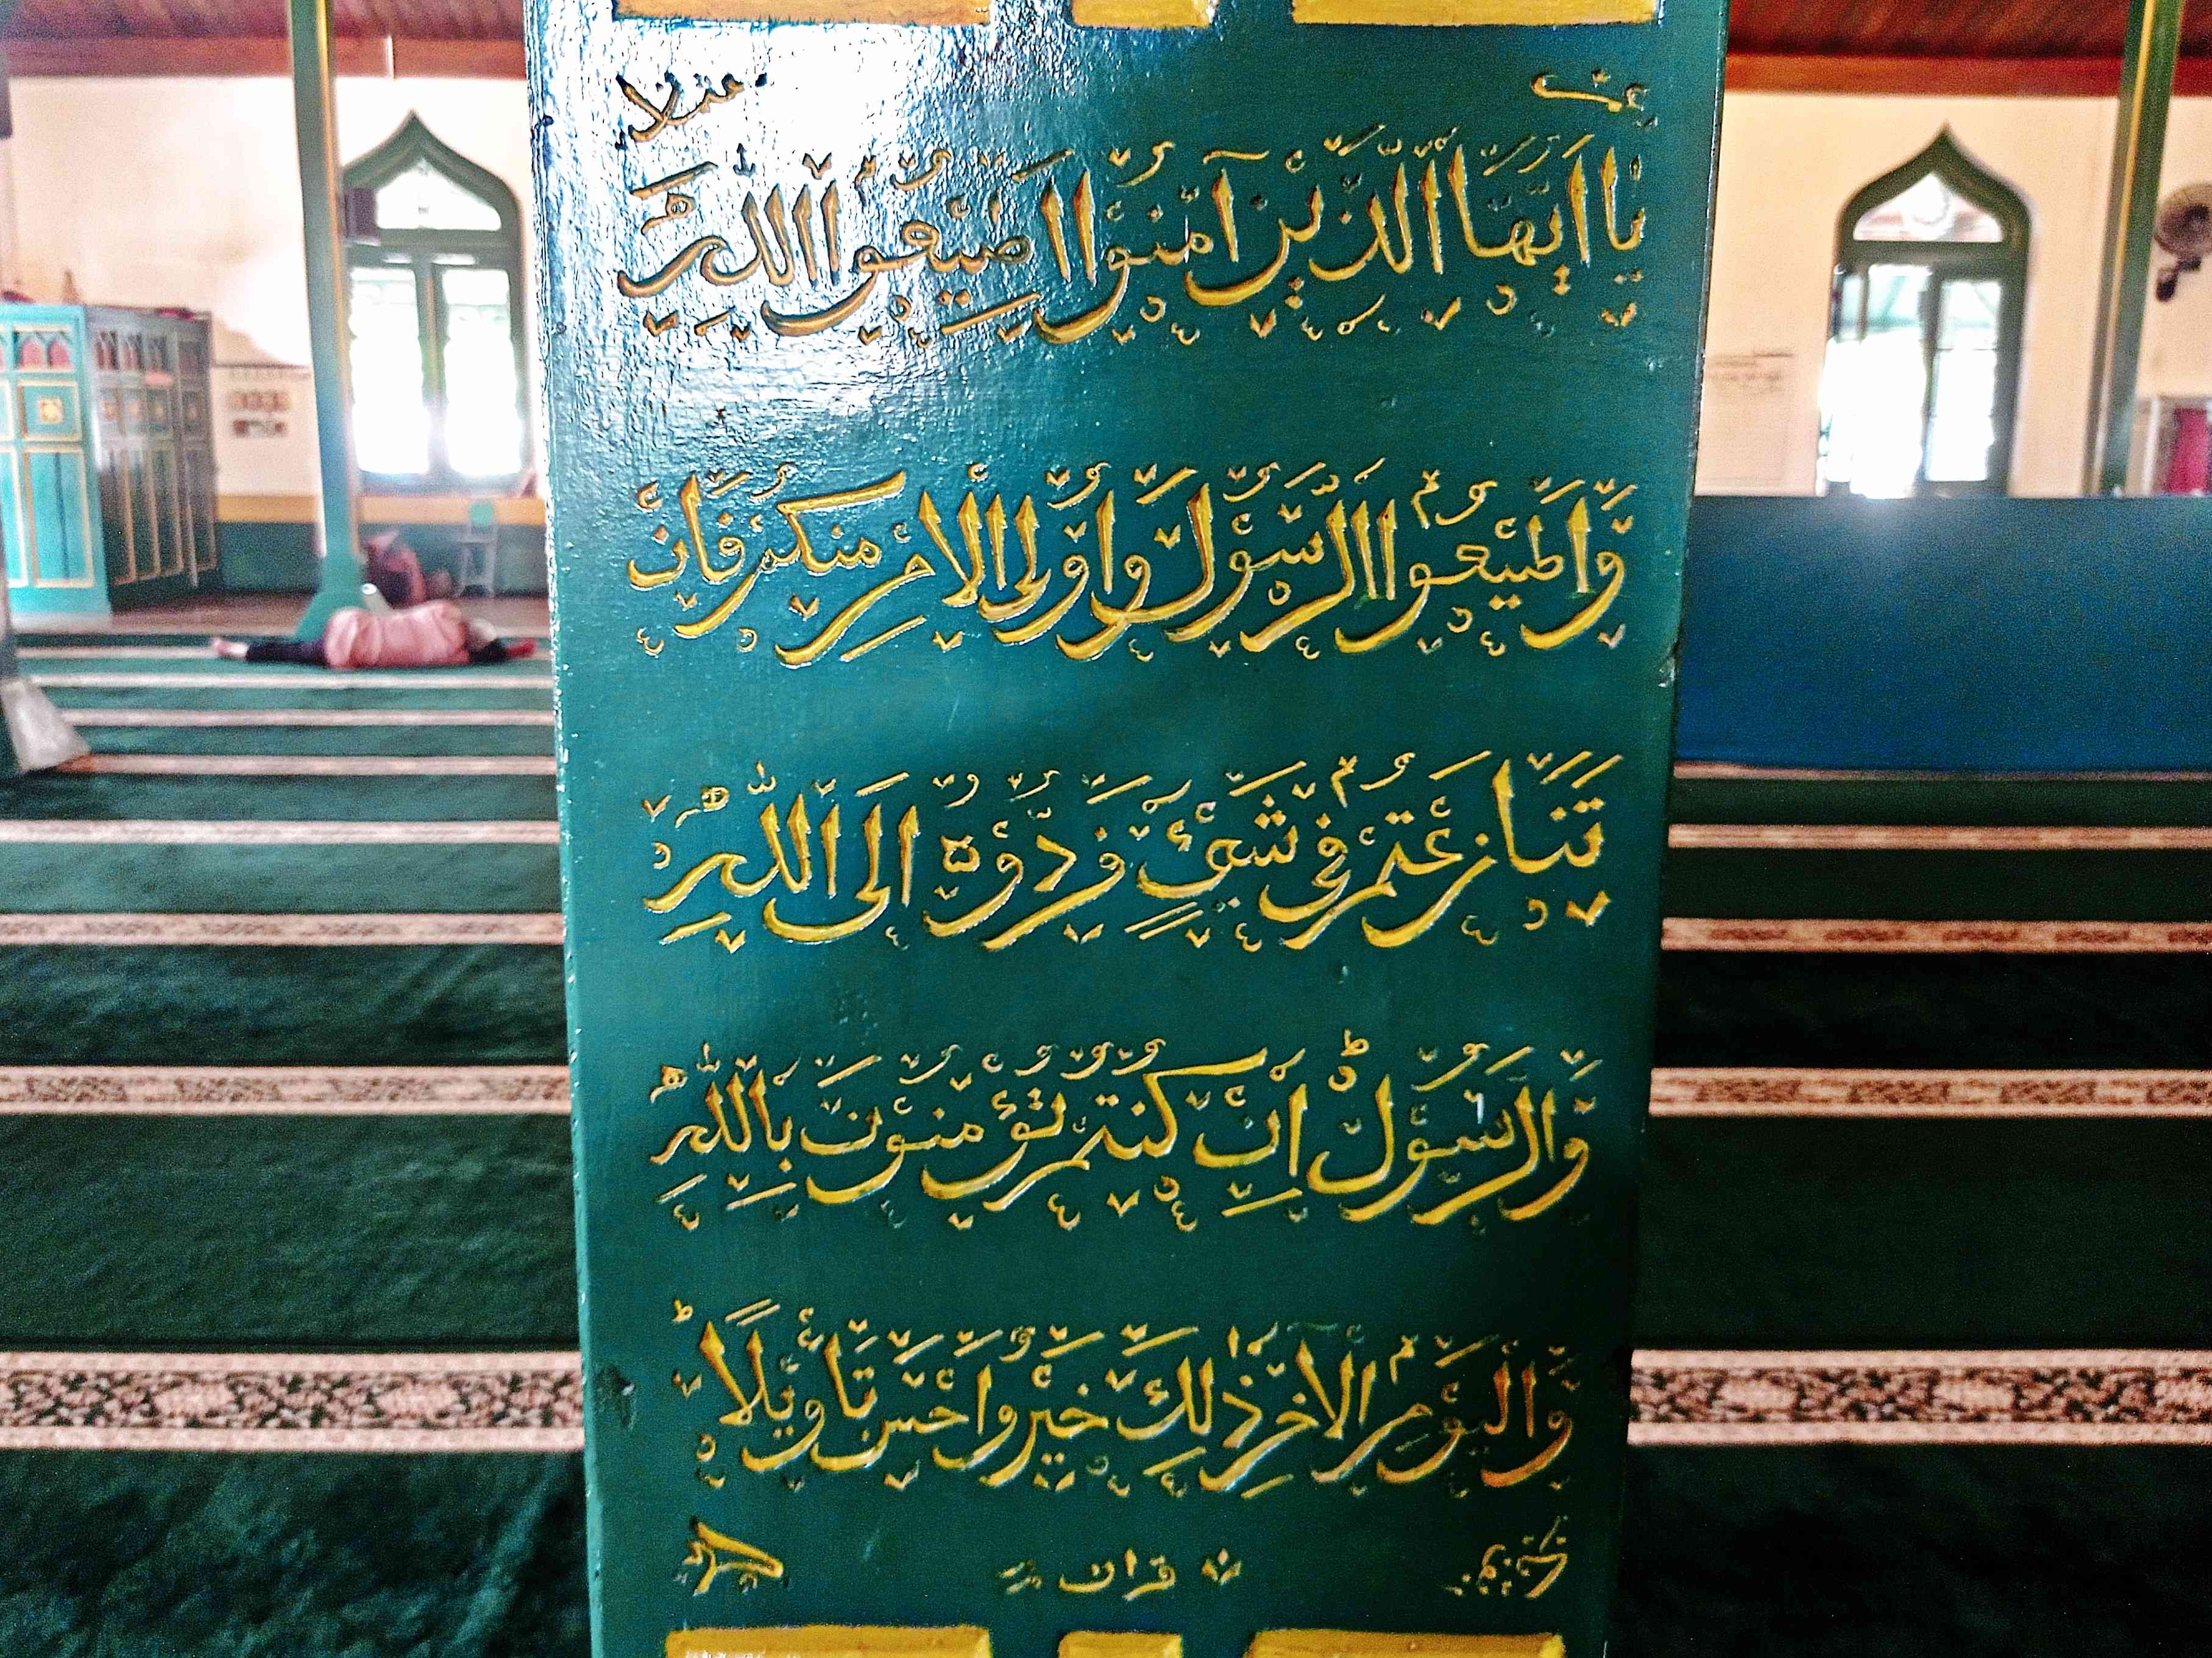 يَا اَيُّهَا الَّذِيْنَ آمَنُوْا اَطِيْعُوا اللهَ
وَاَطِيْعُوا الرَّسُوْلَ وَاُولِى الْاَمْرِ مِنْكُمْ فَاِنْ
تَنَازَعْتُمْ فِى شَىْءٍ فَرُدُّوْهُ اِلَى اللهِ
وَالرَّسُوْلِ اِنْ كُنْتُمْ تُؤْمِنُوْنَ بِاللهِ
وَالْيَوْمِ الْاٰخِرِ ذٰلِكَ خَيْرٌ وَاَحْسَنُ تَأْوِيْلًا
قران